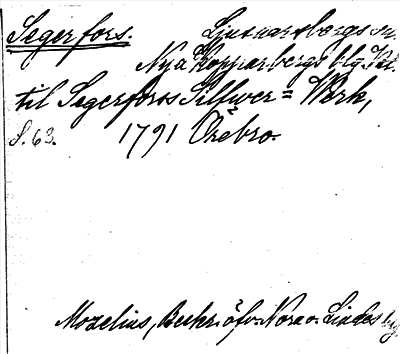 Segerfors. Ljusnarsbergs sn.
Nya Kopparbergs blg Kt.
til Segerforss Silfwer=Werk,
S. 63. 1791 Örebro.
Mozelius, Beskr. öfv. Nora o. Lindes bg.